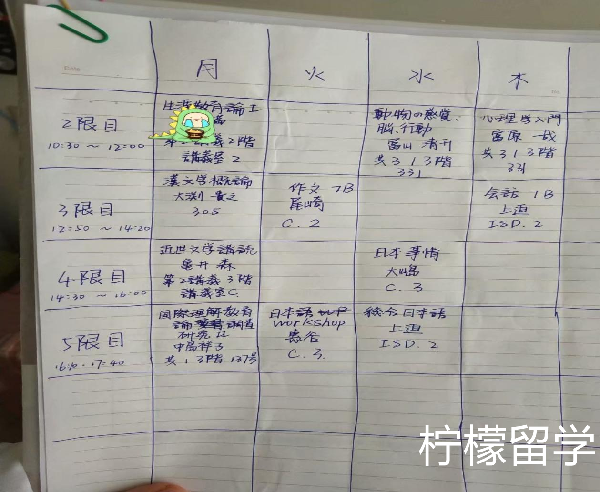 月 火 水 木
2限目
10:30 ~ 12:00
生涯教育論 I
講義室 2
動物の感覚、
脳、行動
富山 清升
共 3 1 3階
331
心理学入門
富原 一哉
共 3 1 3階
331
3限目
12:50 ~ 14:20
漢文学概論
大渕 貴之
305
作文 7B
尾崎
C. 2
会話 1B
上迫
ISD. 2
4限目
14:30 ~ 16:00
近世文学講読
亀井 森
第2講義 3階
講義室C.
日本事情
大嶋
C. 3
5限目
16:10 - 17:40
国際理解教育
研究 II
共 1 3階 137号
日本語
workshop
C. 3.
総合日本語
上迫
ISD. 2
柠檬留学